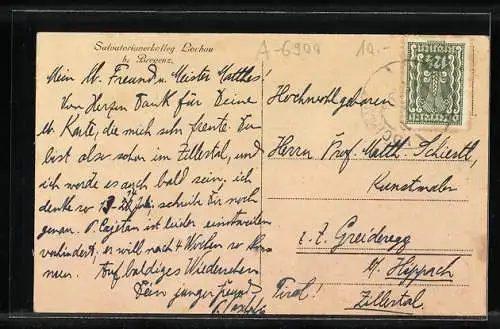 Salvatorianerkolleg Lochau
b. Bregenz.
A-6900
10.-
Mein lb. Freund u. Meister Matthes!
Von Herzen Dank für Deine
lb. Karte, die mich sehr freute. Du
bist also schon im Zillertal, und
ich werde es auch bald sein, ich
denke so schreib Dir noch
genau. P. Cajetan ist leider einstweilen
verhindert, er will nach 4 Wochen so
Auf baldiges Wiedersehen
Dein junger Freund
Hochwohlgeboren
Herrn Prof. Matth. Schiestl,
Kunstmaler
z. Z. Greideregg
b/ Hippach
Tirol! Zillertal.